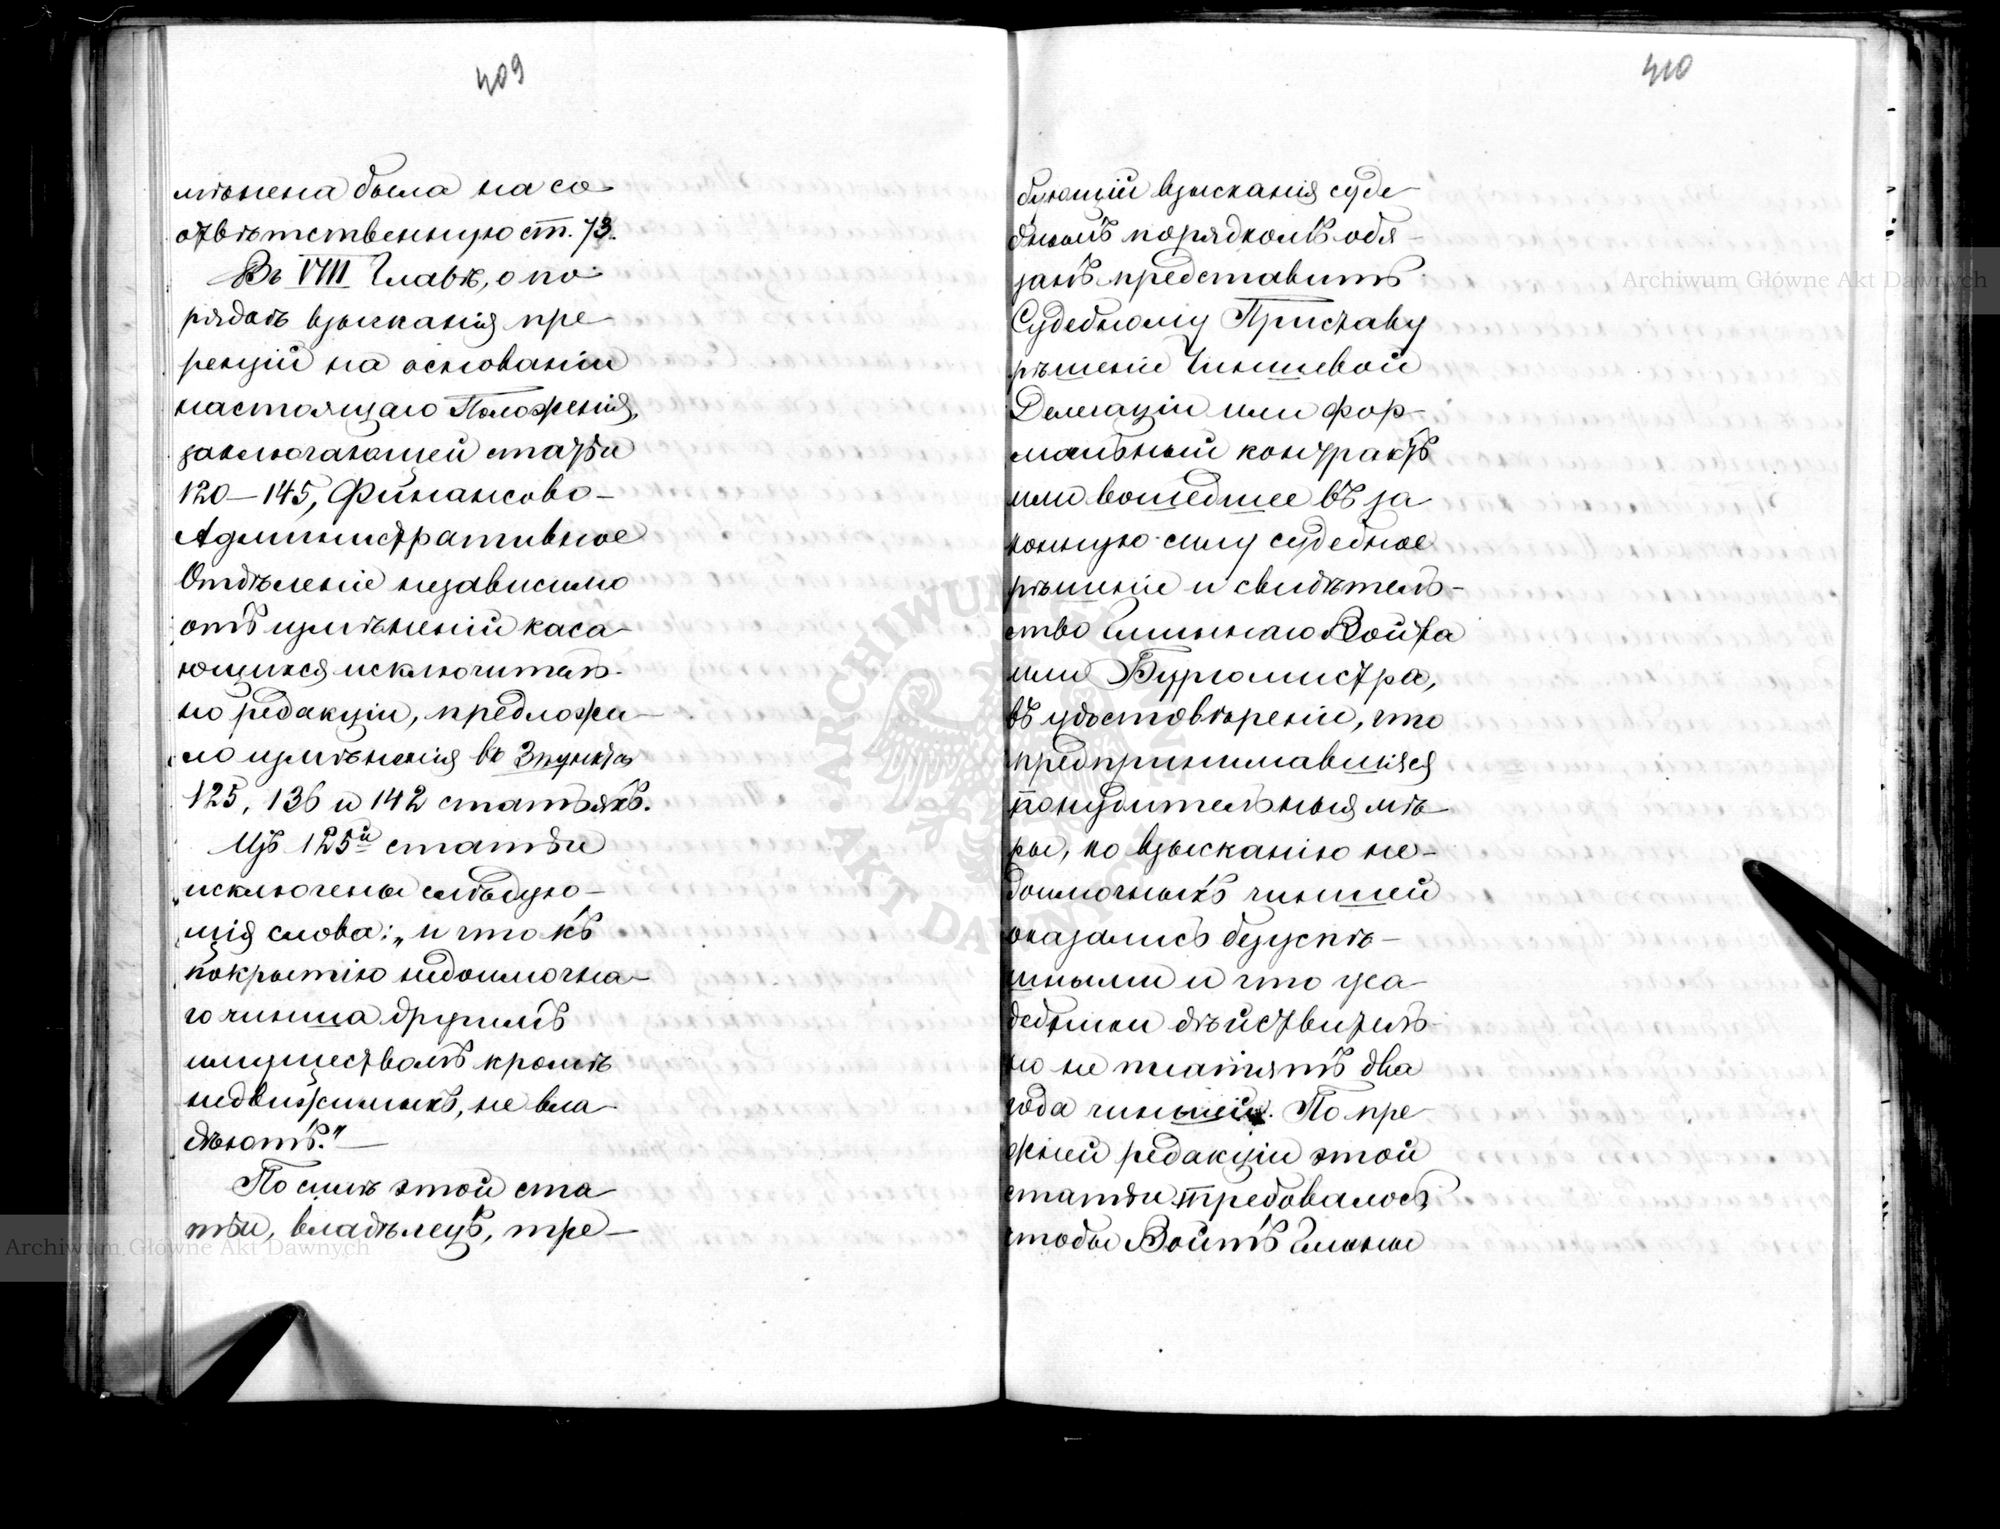 409
мѣнена была на со
отвѣтственную ст. 73.
Въ VIII Главѣ, о по
рядкѣ взысканія пре
тензій на основаніи
настоящаго Положенія,
заключающей статьи
120–145, Финансово-
Административное
Отдѣленіе независимо
отъ измѣненій каса
ющихся исключитель-
но редакціи, предложи-
ло измѣненія въ 3 пунктѣ
125, 136 и 142 статьяхъ.
Изъ 125й статьи
исключены слѣдую-
щія слова: „и что къ
покрытію недоимочна-
го чинша другимъ
имуществомъ кромѣ
недвижимыхъ, не вла-
дѣютъ."—
По силѣ этой ста
тьи, владѣлецъ, тре-
410
бующій взысканія суде-
бнымъ порядкомъ обя-
занъ представить
Судебному Приставу
рѣшеніе Чиншевой
Делегаціи или фор-
мальный контрактъ
или вошедшее въ за
конную силу судебное
рѣшеніе и свидѣтель-
ство Гминнаго Войта
или Бургомистра,
въ удостовѣреніи, что
предпринимавшіяся
понудительныя мѣ-
ры, по взысканію не-
доимочныхъ чиншей
оказались безуспѣ-
шными и что уса-
дебники дѣйствитель-
но не платятъ два
года чиншей. По пре-
жней редакціи этой
статьи требовалось,
чтобы Войтъ Гмины
Archiwum Główne Akt Dawnych
Archiwum Główne Akt Dawnych
ARCHIWUM GŁÓWNE AKT DAWNYCH